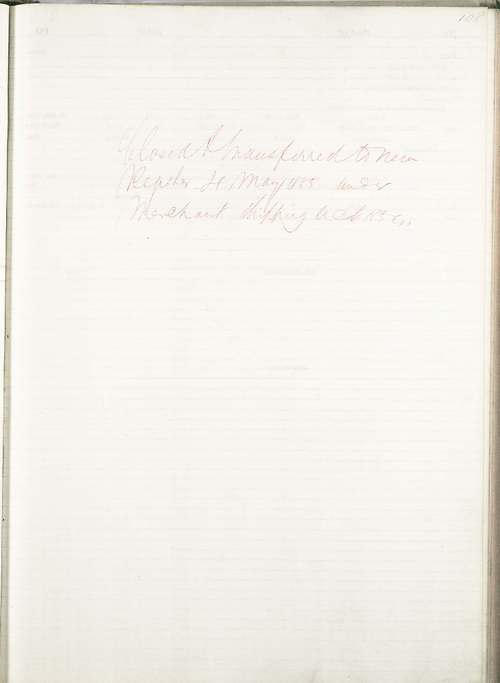 108
Closed & transferred to new
Register 24 May 1855 under
Merchant Shipping Act 1854